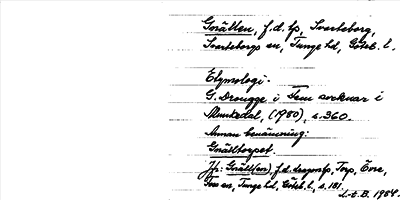 Gnällen, f.d. tp, Svarteborg,
Svarteborgs sn, Tunge hd, Göteb. l.
Etymologi.
G. Drougge i Fem socknar i
Munkedal, (1980), s. 360.
Annan benämning:
Gnälltorpet.
Jfr: Gnäll(en), f.d. torp, Öne,
Foss sn, Tunge hd, Göteb. l., s. 181.
1984.